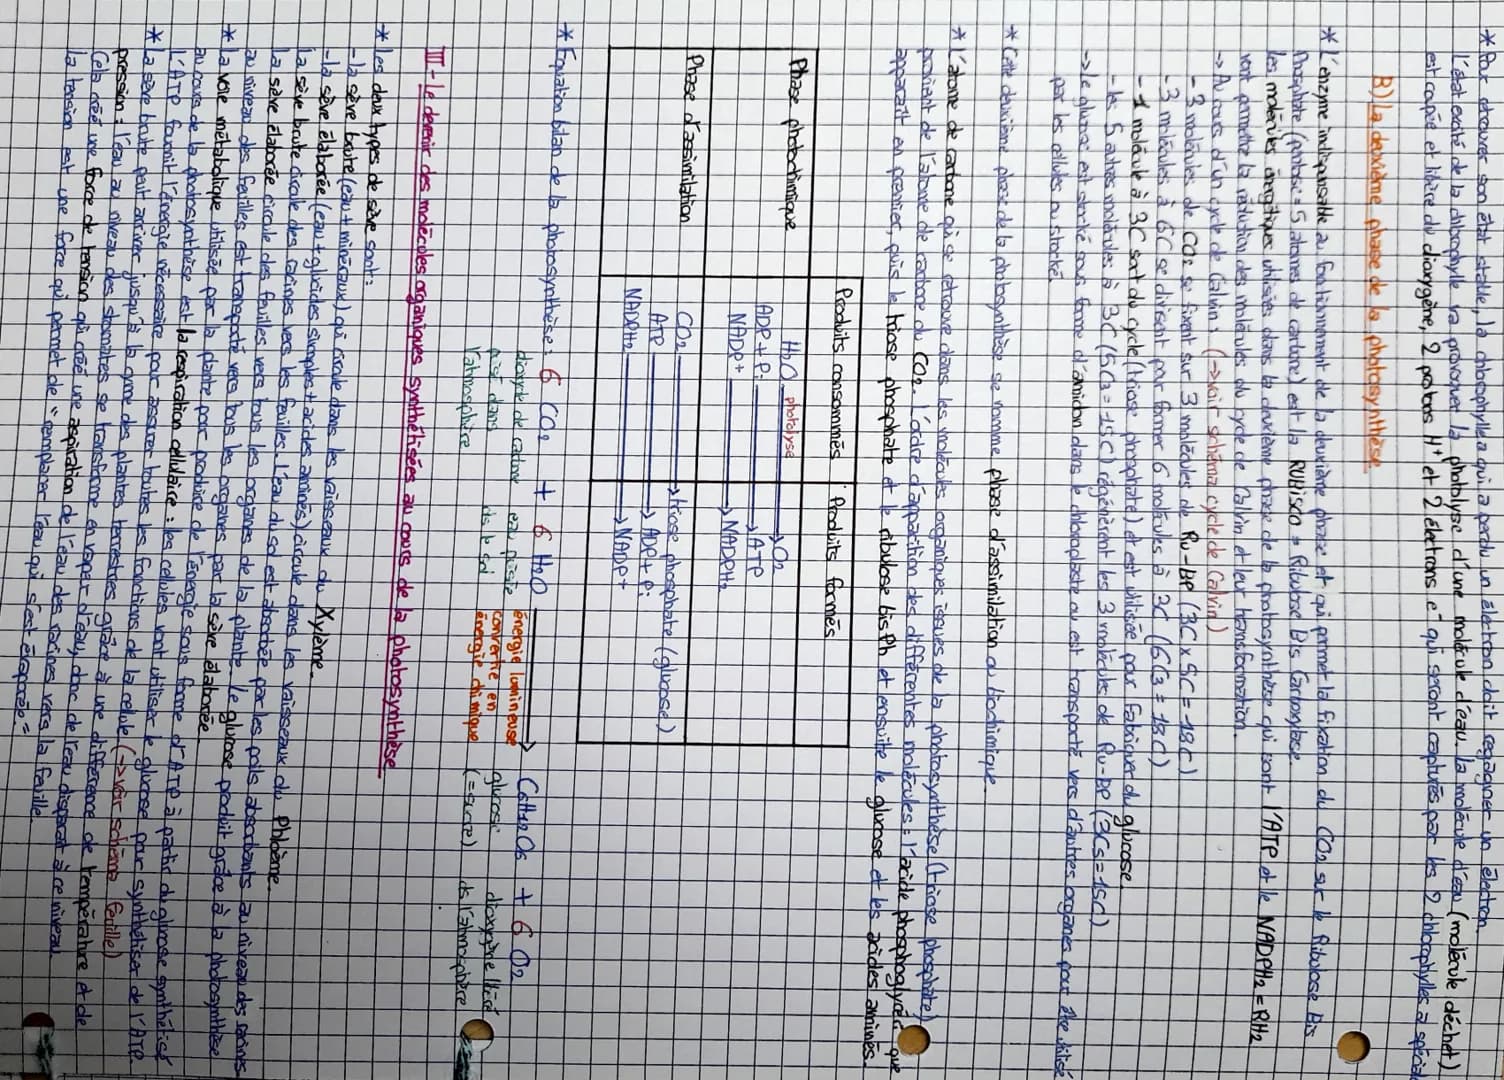 * Pour retrouver son état stable, la chlorophylle a qui a perdu un électron doit regagner un électron.
L'état excité de la chlorophylle va provoquer la photolyse d'une molécule d'eau. La molécule d'eau (molécule déchet)
est captée et libère du dioxygène, 2 protons H+ et 2 électrons e- qui seront capturés par les 2 chlorophylles a
B) La deuxième phase de la photosynthèse
* L'enzyme indispensable au fonctionnement de la deuxième phase et qui permet la fixation du CO2 sur le Ribulose Bis
Phosphate (pentose = 5 atomes de carbone) est la RUBisCO = Ribulose Bis Carboxylase.
Les molécules énergétiques utilisées dans la deuxième phase de la photosynthèse qui sont l'ATP et le NADPH2 = RH2
vont permettre la réduction des molécules du cycle de Calvin et leur transformation.
-> Au cours d'un cycle de Calvin : (-> voir schéma cycle de Calvin)
- 3 molécules de CO2 se fixent sur 3 molécules de Ru-BP (3C x 5C = 18C)
- 3 molécules à 6C se divisent par former 6 molécules à 3C (6C3 = 18C)
- 1 molécule à 3C sort du cycle (triose phosphate) et est utilisée pour fabriquer du glucose
- les 5 autres molécules à 3C (5C3 = 15C) régénèrent les 3 molécules de Ru-BP (3C5 = 15C)
-> Le glucose est stocké sous forme d'amidon dans le chloroplaste ou est transporté vers d'autres organes pour être utilisé
par les cellules ou stocké.
* Cette deuxième phase de la photosynthèse se nomme phase d'assimilation ou biochimique.
* L'atome de carbone qui se retrouve dans les molécules organiques issues de la photosynthèse (triose phosphate)
provient de l'atome de carbone du CO2. L'ordre d'apparition des différentes molécules = l'acide phosphoglycéri que
apparaît en premier, puis le triose phosphate et le ribulose bisPh et ensuite le glucose et les acides aminés.
Produits consommés Produits formés
Phase photochimique
H2O photolyse -> O2
ADP + Pi -> ATP
NADP+ -> NADPH2
Phase d'assimilation
CO2 -> triose phosphate (glucose)
ATP -> ADP + Pi
NADPH2 -> NADP+
* Equation bilan de la photosynthèse : 6 CO2 + 6 H2O -> C6H12O6 + 6 O2
dioxyde de carbone puisé dans l'atmosphère
eau puisée ds le sol
énergie lumineuse convertie en énergie chimique
glucose (= sucre)
dioxygène libéré ds l'atmosphère
III - Le devenir des molécules organiques synthétisées au cours de la photosynthèse
* Les deux types de sève sont :
- la sève brute (eau + minéraux) qui circule dans les vaisseaux du Xylème.
- la sève élaborée (eau + glucides simples + acides aminés) circule dans les vaisseaux du Phloème.
La sève brute circule des racines vers les feuilles. L'eau du sol est absorbée par les poils absorbants au niveau des racines
La sève élaborée circule des feuilles vers tous les organes de la plante. Le glucose produit grâce à la photosynthèse
au niveau des feuilles est transporté vers tous les organes par la sève élaborée.
* La voie métabolique utilisée par la plante pour produire de l'énergie sous forme d'ATP à partir du glucose synthétisé
au cours de la photosynthèse est la respiration cellulaire : les cellules vont utiliser le glucose pour synthétiser de l'ATP.
L'ATP fournit l'énergie nécessaire pour assurer toutes les fonctions de la cellule (-> voir schéma feuille)
* La sève brute peut arriver jusqu'à la cyme des plantes terrestres grâce à une différence de température et de
pression : l'eau au niveau des stomates se transforme en vapeur d'eau, donc de l'eau disparaît à ce niveau.
Cela créé une force de tension qui créé une aspiration de l'eau des racines vers la feuille.
La tension est une force qui permet de "remplacer l'eau qui s'est évaporée"